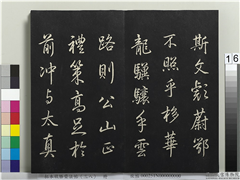 斯文彪蔚鄂
不照乎栘華
龍驥驤乎雲
路則公山正
禮策高足於
前沖与太真
16